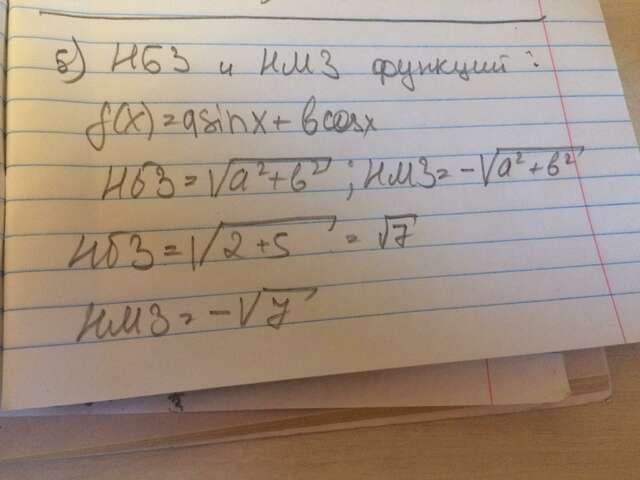 б) НБЗ и НМЗ функций:
f(x)=asinx+bcosx
НБЗ=√a²+b²; НМЗ=-√a²+b²
НБЗ=√2+5 = √7
НМЗ=-√7